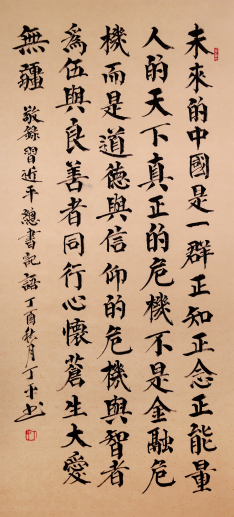 未來的中國是一群正知正念正能量
人的天下真正的危機不是金融危
機而是道德與信仰的危機與智者
為伍與良善者同行心懷蒼生大愛
無疆
敬錄習近平總書記語丁酉秋月丁平書